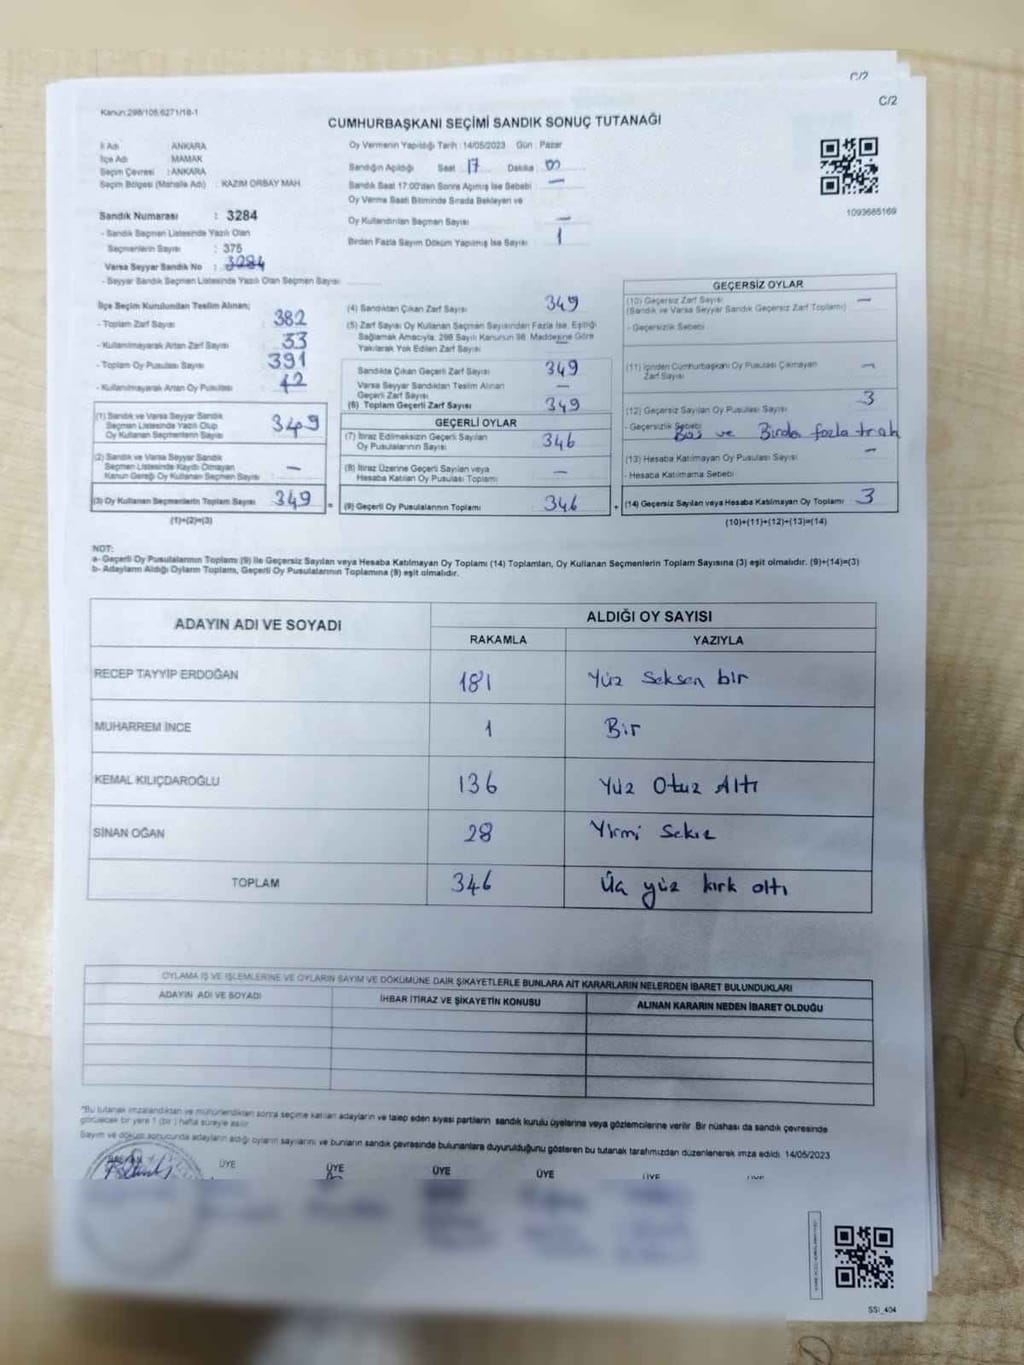 C/2
C/2
Kanun:298/105,6271/18-1
CUMHURBAŞKANI SEÇİMİ SANDIK SONUÇ TUTANAĞI
İl Adı ANKARA
İlçe Adı MAMAK
Seçim Çevresi : ANKARA
Seçim Bölgesi (Mahalle Adı) : KAZIM ORBAY MAH.
Sandık Numarası : 3284
- Sandık Seçmen Listesinde Yazılı Olan
Seçmenlerin Sayısı : 375
Varsa Seyyar Sandık No : 3284
- Seyyar Sandık Seçmen Listesinde Yazılı Olan Seçmen Sayısı
Oy Vermenin Yapıldığı Tarih :14/05/2023 Gün : Pazar
Sandığın Açıldığı Saat 17 Dakika 00
Sandık Saat 17:00'dan Sonra Açılmış İse Sebebi —
Oy Verme Saati Bitiminde Sırada Bekleyen ve
Oy Kullandırılan Seçmen Sayısı —
Birden Fazla Sayım Döküm Yapılmış İse Sayısı 1
1093685169
İlçe Seçim Kurulundan Teslim Alınan;
- Toplam Zarf Sayısı 382
- Kullanılmayarak Artan Zarf Sayısı 33
- Toplam Oy Pusulası Sayısı 391
- Kullanılmayarak Artan Oy Pusulası 42
(1) Sandık ve Varsa Seyyar Sandık
Seçmen Listesinde Yazılı Olup
Oy Kullanan Seçmenlerin Sayısı 349
(2) Sandık ve Varsa Seyyar Sandık
Seçmen Listesinde Kaydı Olmayan
Kanun Gereği Oy Kullanan Seçmen Sayısı —
(3) Oy Kullanan Seçmenlerin Toplam Sayısı 349 =
(1)+(2)=(3)
(4) Sandıktan Çıkan Zarf Sayısı 349
(5) Zarf Sayısı Oy Kullanan Seçmen Sayısından Fazla İse, Eşitliği
Sağlamak Amacıyla, 298 Sayılı Kanunun 98. Maddesine Göre
Yakılarak Yok Edilen Zarf Sayısı —
Sandıkta Çıkan Geçerli Zarf Sayısı 349
Varsa Seyyar Sandıktan Teslim Alınan
Geçerli Zarf Sayısı —
(6) Toplam Geçerli Zarf Sayısı 349
GEÇERLİ OYLAR
(7) İtiraz Edilmeksizin Geçerli Sayılan
Oy Pusulalarının Sayısı 346
(8) İtiraz Üzerine Geçerli Sayılan veya
Hesaba Katılan Oy Pusulası Toplamı —
(9) Geçerli Oy Pusulalarının Toplamı 346 +
GEÇERSİZ OYLAR
(10) Geçersiz Zarf Sayısı —
(Sandık ve Varsa Seyyar Sandık Geçersiz Zarf Toplamı)
- Geçersizlik Sebebi
(11) İçinden Cumhurbaşkanı Oy Pusulası Çıkmayan
Zarf Sayısı —
(12) Geçersiz Sayılan Oy Pusulası Sayısı 3
- Geçersizlik Sebebi Boş ve Birden fazla
(13) Hesaba Katılmayan Oy Pusulası Sayısı —
- Hesaba Katılmama Sebebi
(14) Geçersiz Sayılan veya Hesaba Katılmayan Oy Toplamı 3
(10)+(11)+(12)+(13)=(14)
NOT:
a- Geçerli Oy Pusulalarının Toplamı (9) ile Geçersiz Sayılan veya Hesaba Katılmayan Oy Toplamı (14) Toplamları, Oy Kullanan Seçmenlerin Toplam Sayısına (3) eşit olmalıdır. (9)+(14)=(3)
b- Adayların Aldığı Oyların Toplamı, Geçerli Oy Pusulalarının Toplamına (9) eşit olmalıdır.
ADAYIN ADI VE SOYADI ALDIĞI OY SAYISI
RAKAMLA YAZIYLA
RECEP TAYYİP ERDOĞAN 181 Yüz Seksen bir
MUHARREM İNCE 1 Bir
KEMAL KILIÇDAROĞLU 136 Yüz Otuz Altı
SİNAN OĞAN 28 Yirmi Sekiz
TOPLAM 346 Üç yüz kırk altı
OYLAMA İŞ VE İŞLEMLERİNE VE OYLARIN SAYIM VE DÖKÜMÜNE DAİR ŞİKAYETLERLE BUNLARA AİT KARARLARIN NELERDEN İBARET BULUNDUKLARI
ADAYIN ADI VE SOYADI İHBAR İTİRAZ VE ŞİKAYETİN KONUSU ALINAN KARARIN NEDEN İBARET OLDUĞU
*Bu tutanak imzalandıktan ve mühürlendikten sonra seçime katılan adayların ve talep eden siyasi partilerin sandık kurulu üyelerine veya gözlemcilerine verilir. Bir nüshası da sandık çevresinde
görülecek bir yere 1 (bir) hafta süreyle asılır.
Sayım ve döküm sonucunda adayların aldığı oyların sayılarını ve bunların sandık çevresinde bulunanlara duyurulduğunu gösteren bu tutanak tarafımızdan düzenlenerek imza edildi. 14/05/2023
BAŞKAN ÜYE ÜYE ÜYE ÜYE ÜYE
SSI_404